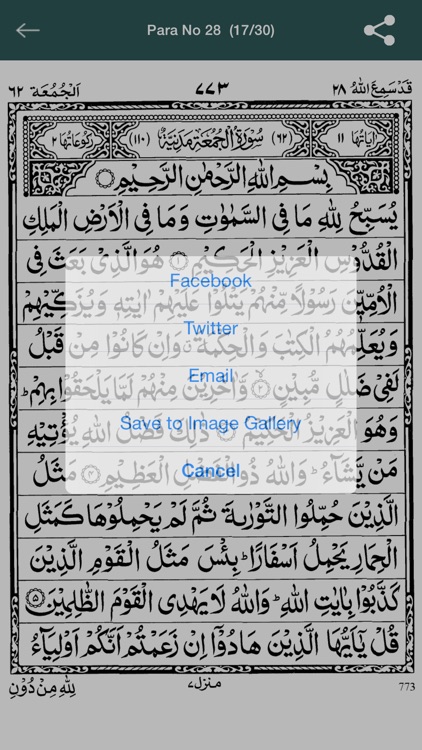 Para No 28 (17/30)
قَدْسَمِعَ اللّٰهُ ٢٨
٧٧٣
اَلْجُمُعَة ٦٢
اٰيَاتُهَا ١١
(٦٢) سُوْرَةُ الْجُمُعَةِ مَدَنِيَّةٌ (١١٠)
رُكُوْعَاتُهَا ٢
بِسْمِ اللّٰهِ الرَّحْمٰنِ الرَّحِيْمِ
يُسَبِّحُ لِلّٰهِ مَا فِى السَّمٰوٰتِ وَمَا فِى الْاَرْضِ الْمَلِكِ
الْقُدُّوْسِ الْعَزِيْزِ الْحَكِيْمِ ۝١ هُوَ الَّذِىْ بَعَثَ فِى
Facebook
الْاُمِّيّٖنَ رَسُوْلًا مِّنْهُمْ يَتْلُوْا عَلَيْهِمْ اٰيٰتِهٖ وَيُزَكِّيْهِمْ
Twitter
وَيُعَلِّمُهُمُ الْكِتٰبَ وَالْحِكْمَةَ ۗ وَاِنْ كَانُوْا مِنْ قَبْلُ
Email
لَفِىْ ضَلٰلٍ مُّبِيْنٍ ۝٢ وَّاٰخَرِيْنَ مِنْهُمْ لَمَّا يَلْحَقُوْا بِهِمْ ؕ
Save to Image Gallery
وَهُوَ الْعَزِيْزُ الْحَكِيْمُ ۝٣ ذٰلِكَ فَضْلُ اللّٰهِ يُؤْتِيْهِ
Cancel
مَنْ يَّشَآءُ ؕ وَاللّٰهُ ذُو الْفَضْلِ الْعَظِيْمِ ۝٤ مَثَلُ
الَّذِيْنَ حُمِّلُوا التَّوْرٰىةَ ثُمَّ لَمْ يَحْمِلُوْهَا كَمَثَلِ
الْحِمَارِ يَحْمِلُ اَسْفَارًا ؕ بِئْسَ مَثَلُ الْقَوْمِ الَّذِيْنَ
كَذَّبُوْا بِاٰيٰتِ اللّٰهِ ؕ وَاللّٰهُ لَا يَهْدِى الْقَوْمَ الظّٰلِمِيْنَ ۝٥
قُلْ يٰۤاَيُّهَا الَّذِيْنَ هَادُوْۤا اِنْ زَعَمْتُمْ اَنَّكُمْ اَوْلِيَآءُ
لِلّٰهِ مِنْ دُوْنِ
منزل ٧
773